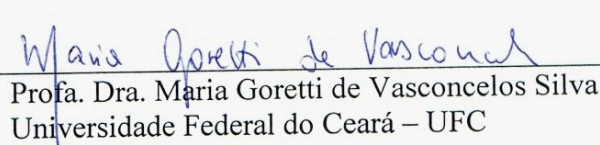 Maria Goretti de Vasconcel
Profa. Dra. Maria Goretti de Vasconcelos Silva
Universidade Federal do Ceará – UFC